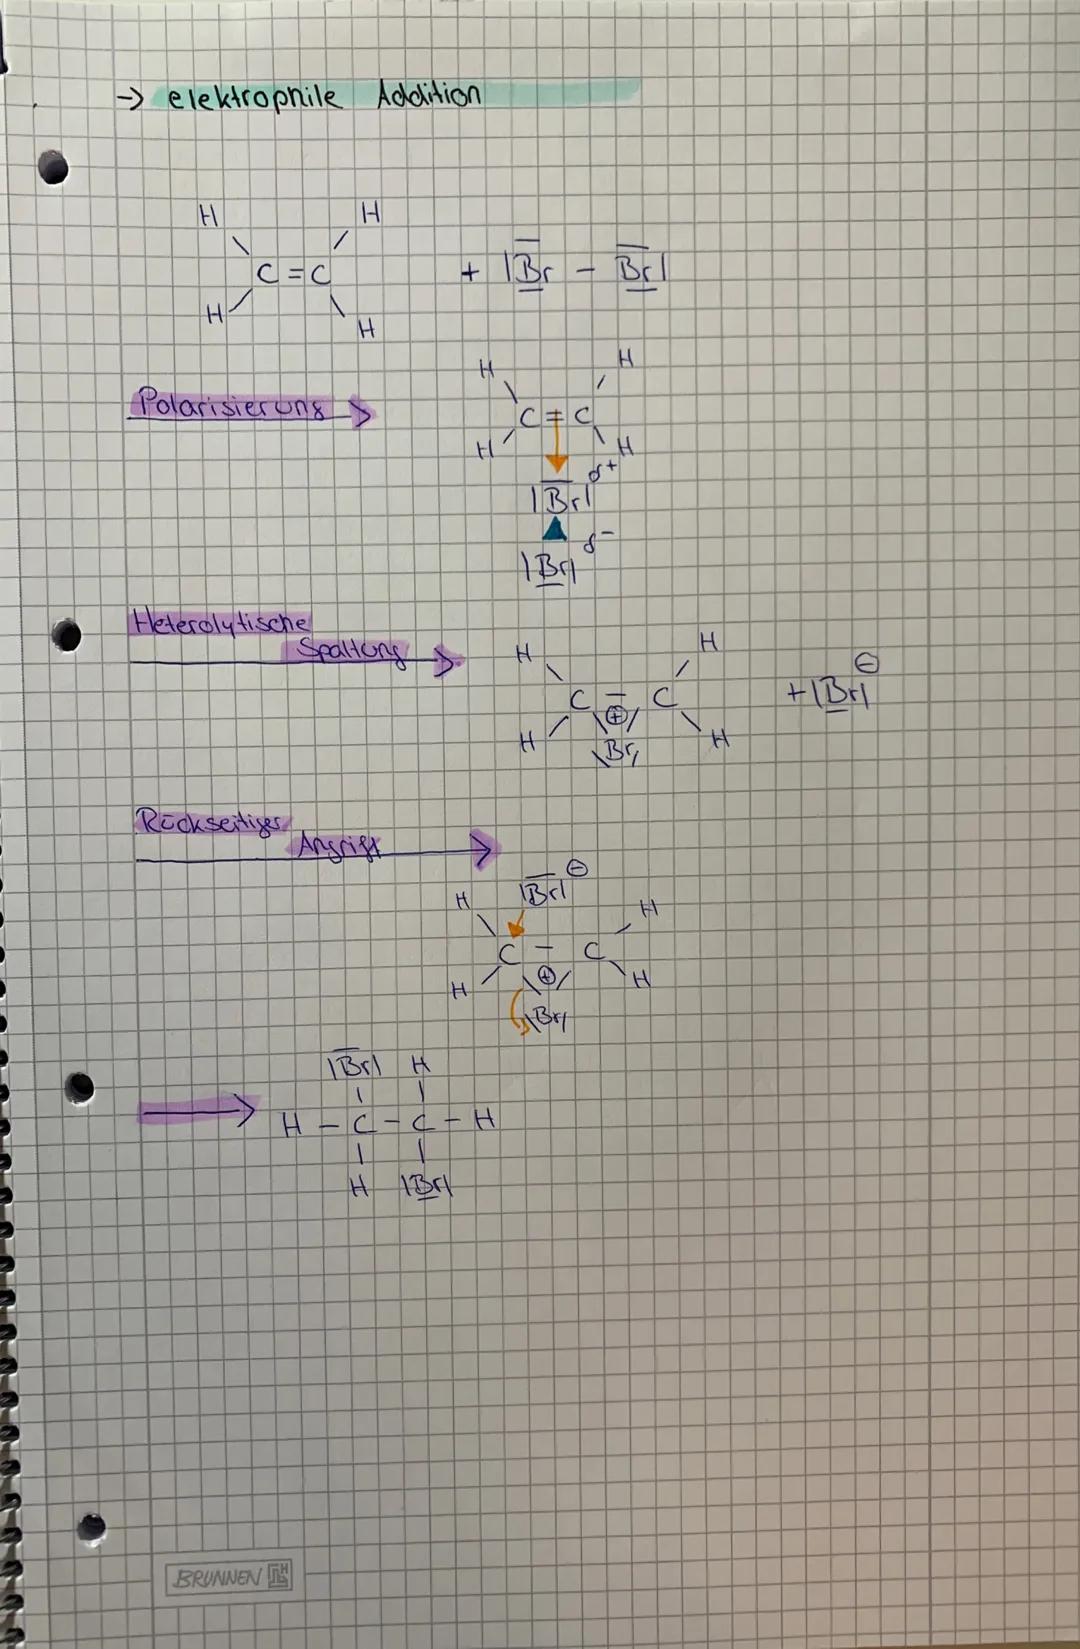 → elektrophile Addition
H H
C = C + |Br - Br|
H H
H H
Polarisierung
C = C
H H
|Br| δ+
|Br| δ-
Heterolytische
Spaltung
H H
C - C + |Br| ⊖
⊕
H H
Br
Rückseitiger
Angriff
|Br| ⊖
H H
C - C
⊕
H H
Br
|Br| H
H - C - C - H
H |Br|
BRUNNEN